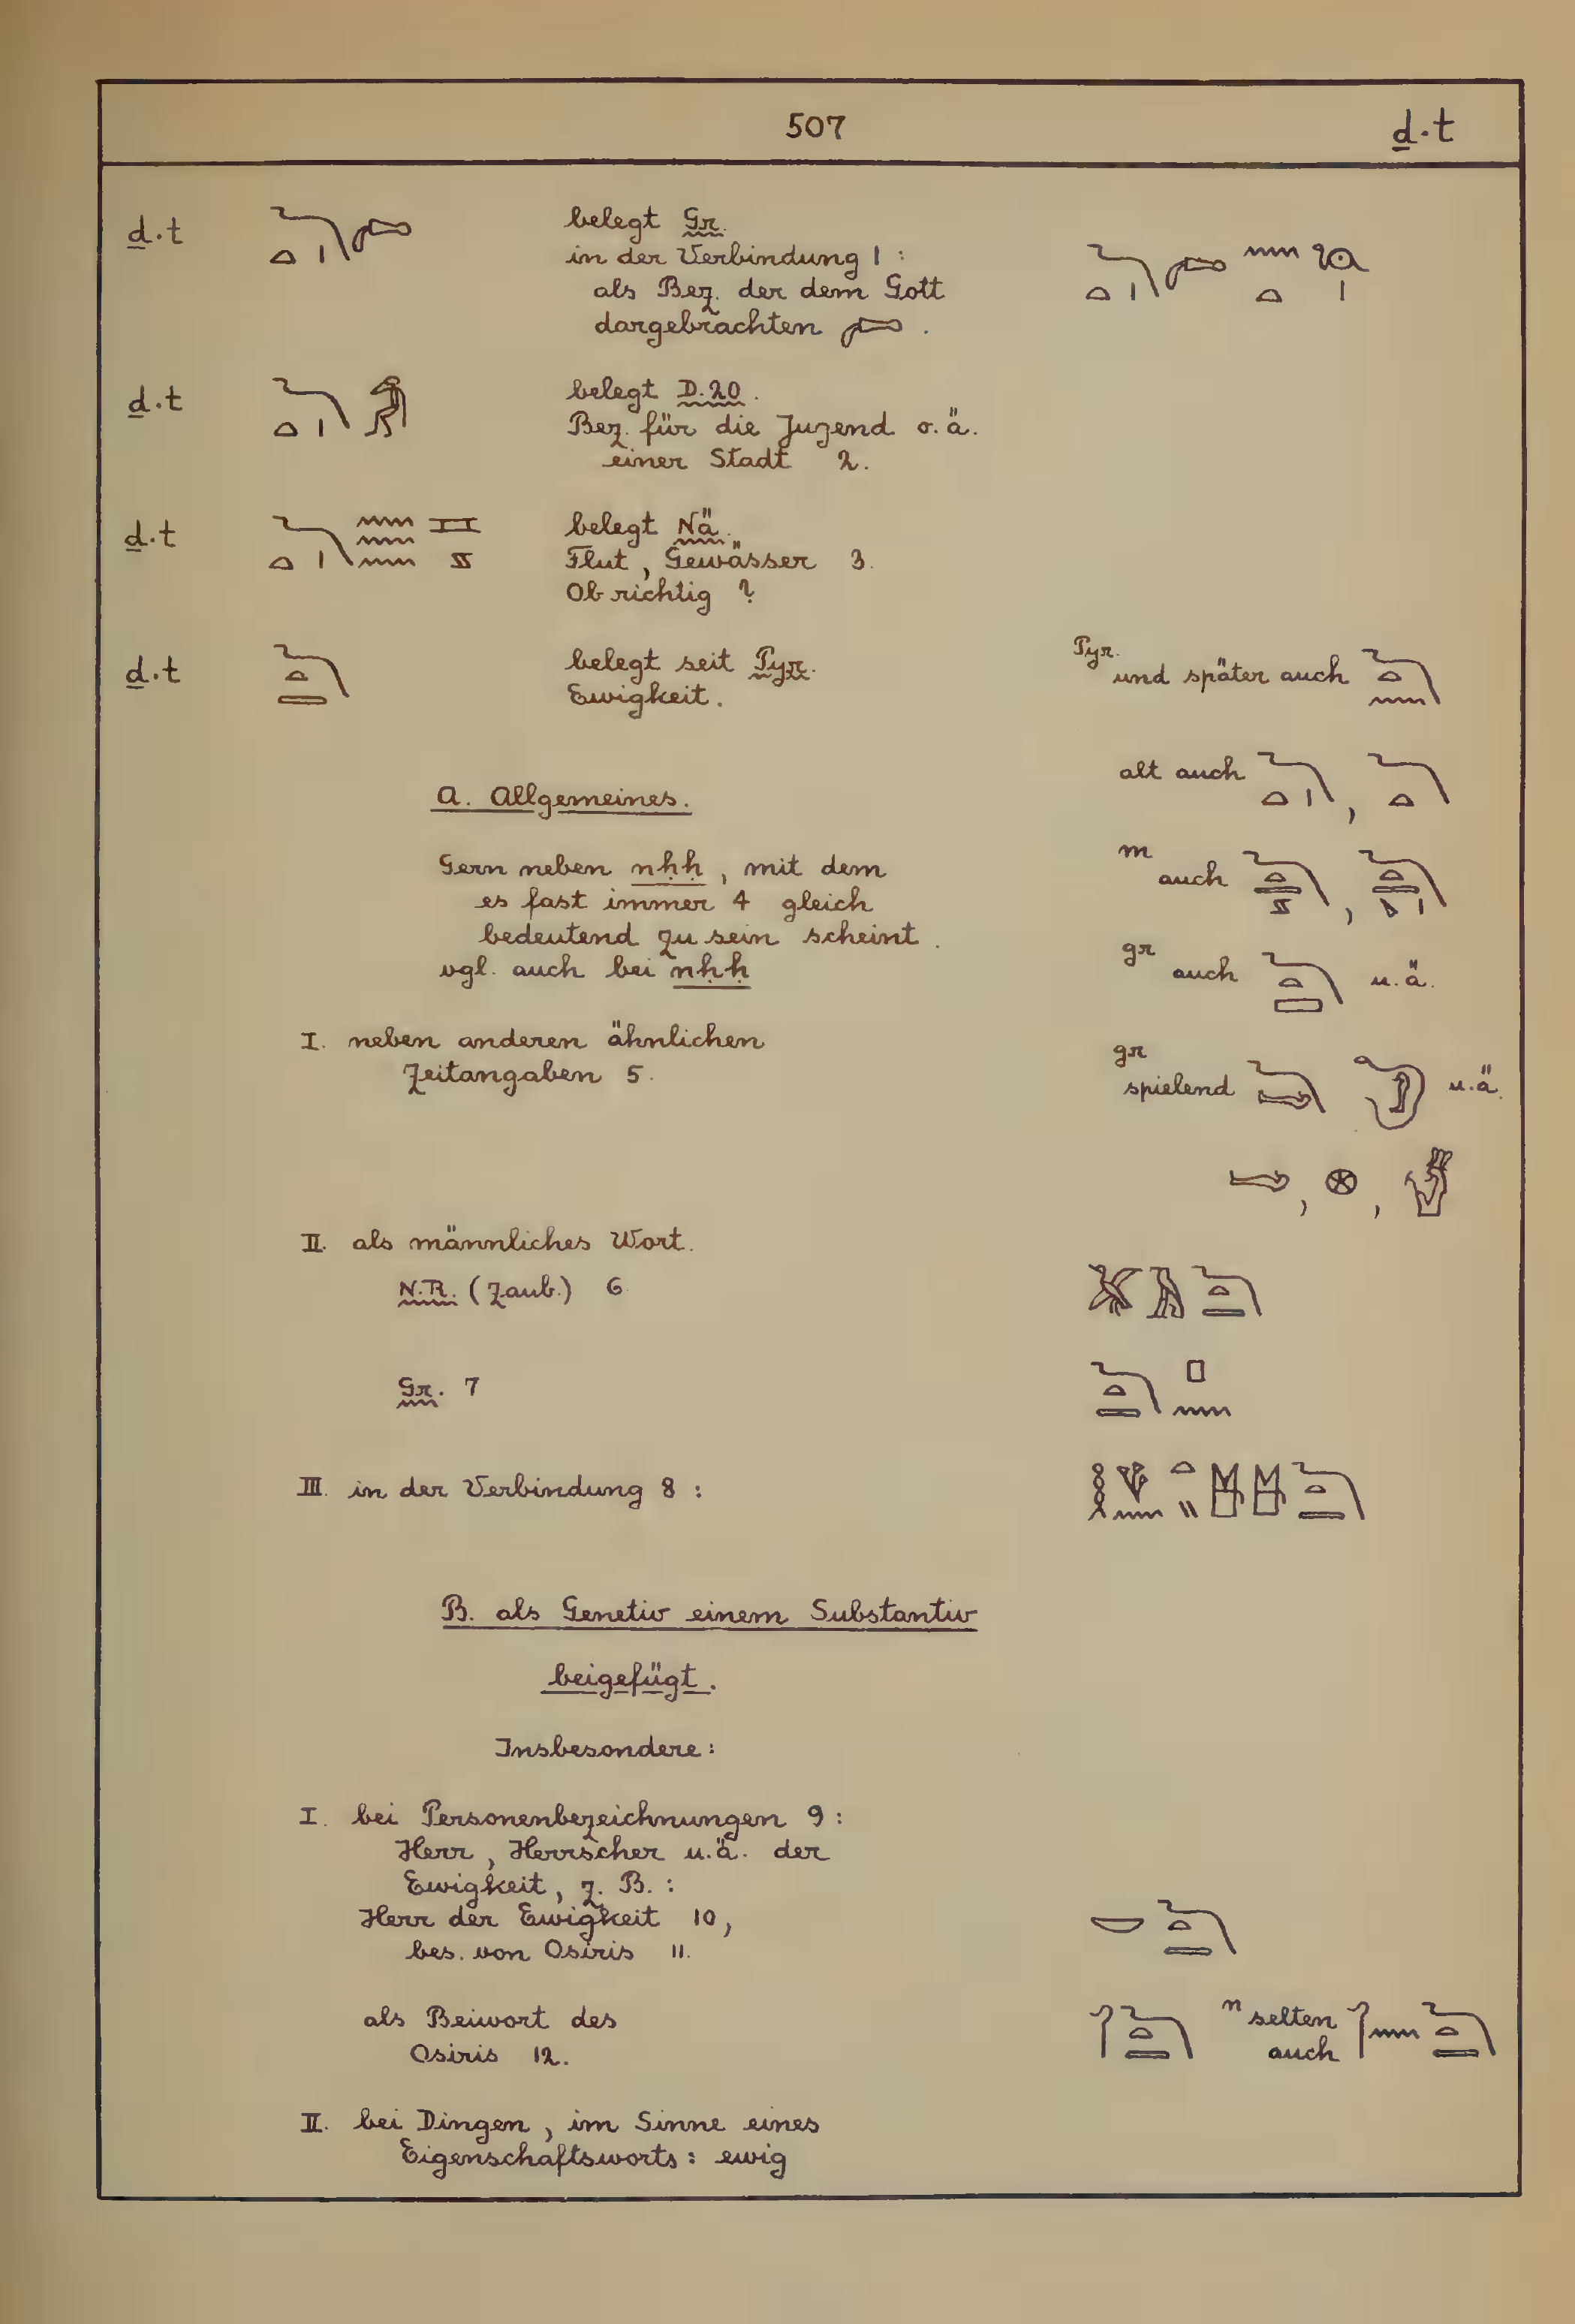 507 ḏ.t
ḏ.t belegt Gr.
in der Verbindung 1 :
als Bez. der dem Gott
dargebrachten .
ḏ.t belegt D.20.
Bez. für die Jugend o.ä.
einer Stadt 2.
ḏ.t belegt Nä.
Flut, Gewässer 3.
Ob richtig ?
ḏ.t belegt seit Pyr.
Ewigkeit.
Pyr. und später auch
alt auch ,
A. Allgemeines.
m auch ,
Gern neben nḥḥ, mit dem
es fast immer 4 gleich
bedeutend zu sein scheint.
vgl. auch bei nḥḥ
gr auch u.ä.
I. neben anderen ähnlichen
Zeitangaben 5.
gr spielend u.ä.
, ,
II. als männliches Wort.
N.R. (Zaub.) 6
Gr. 7
III. in der Verbindung 8 :
B. als Genetiv einem Substantiv
beigefügt.
Insbesondere:
I. bei Personenbezeichnungen 9 :
Herr, Herrscher u.ä. der
Ewigkeit, z. B. :
Herr der Ewigkeit 10,
bes. von Osiris 11.
als Beiwort des
Osiris 12.
n selten
auch
II. bei Dingen, im Sinne eines
Eigenschaftsworts: ewig